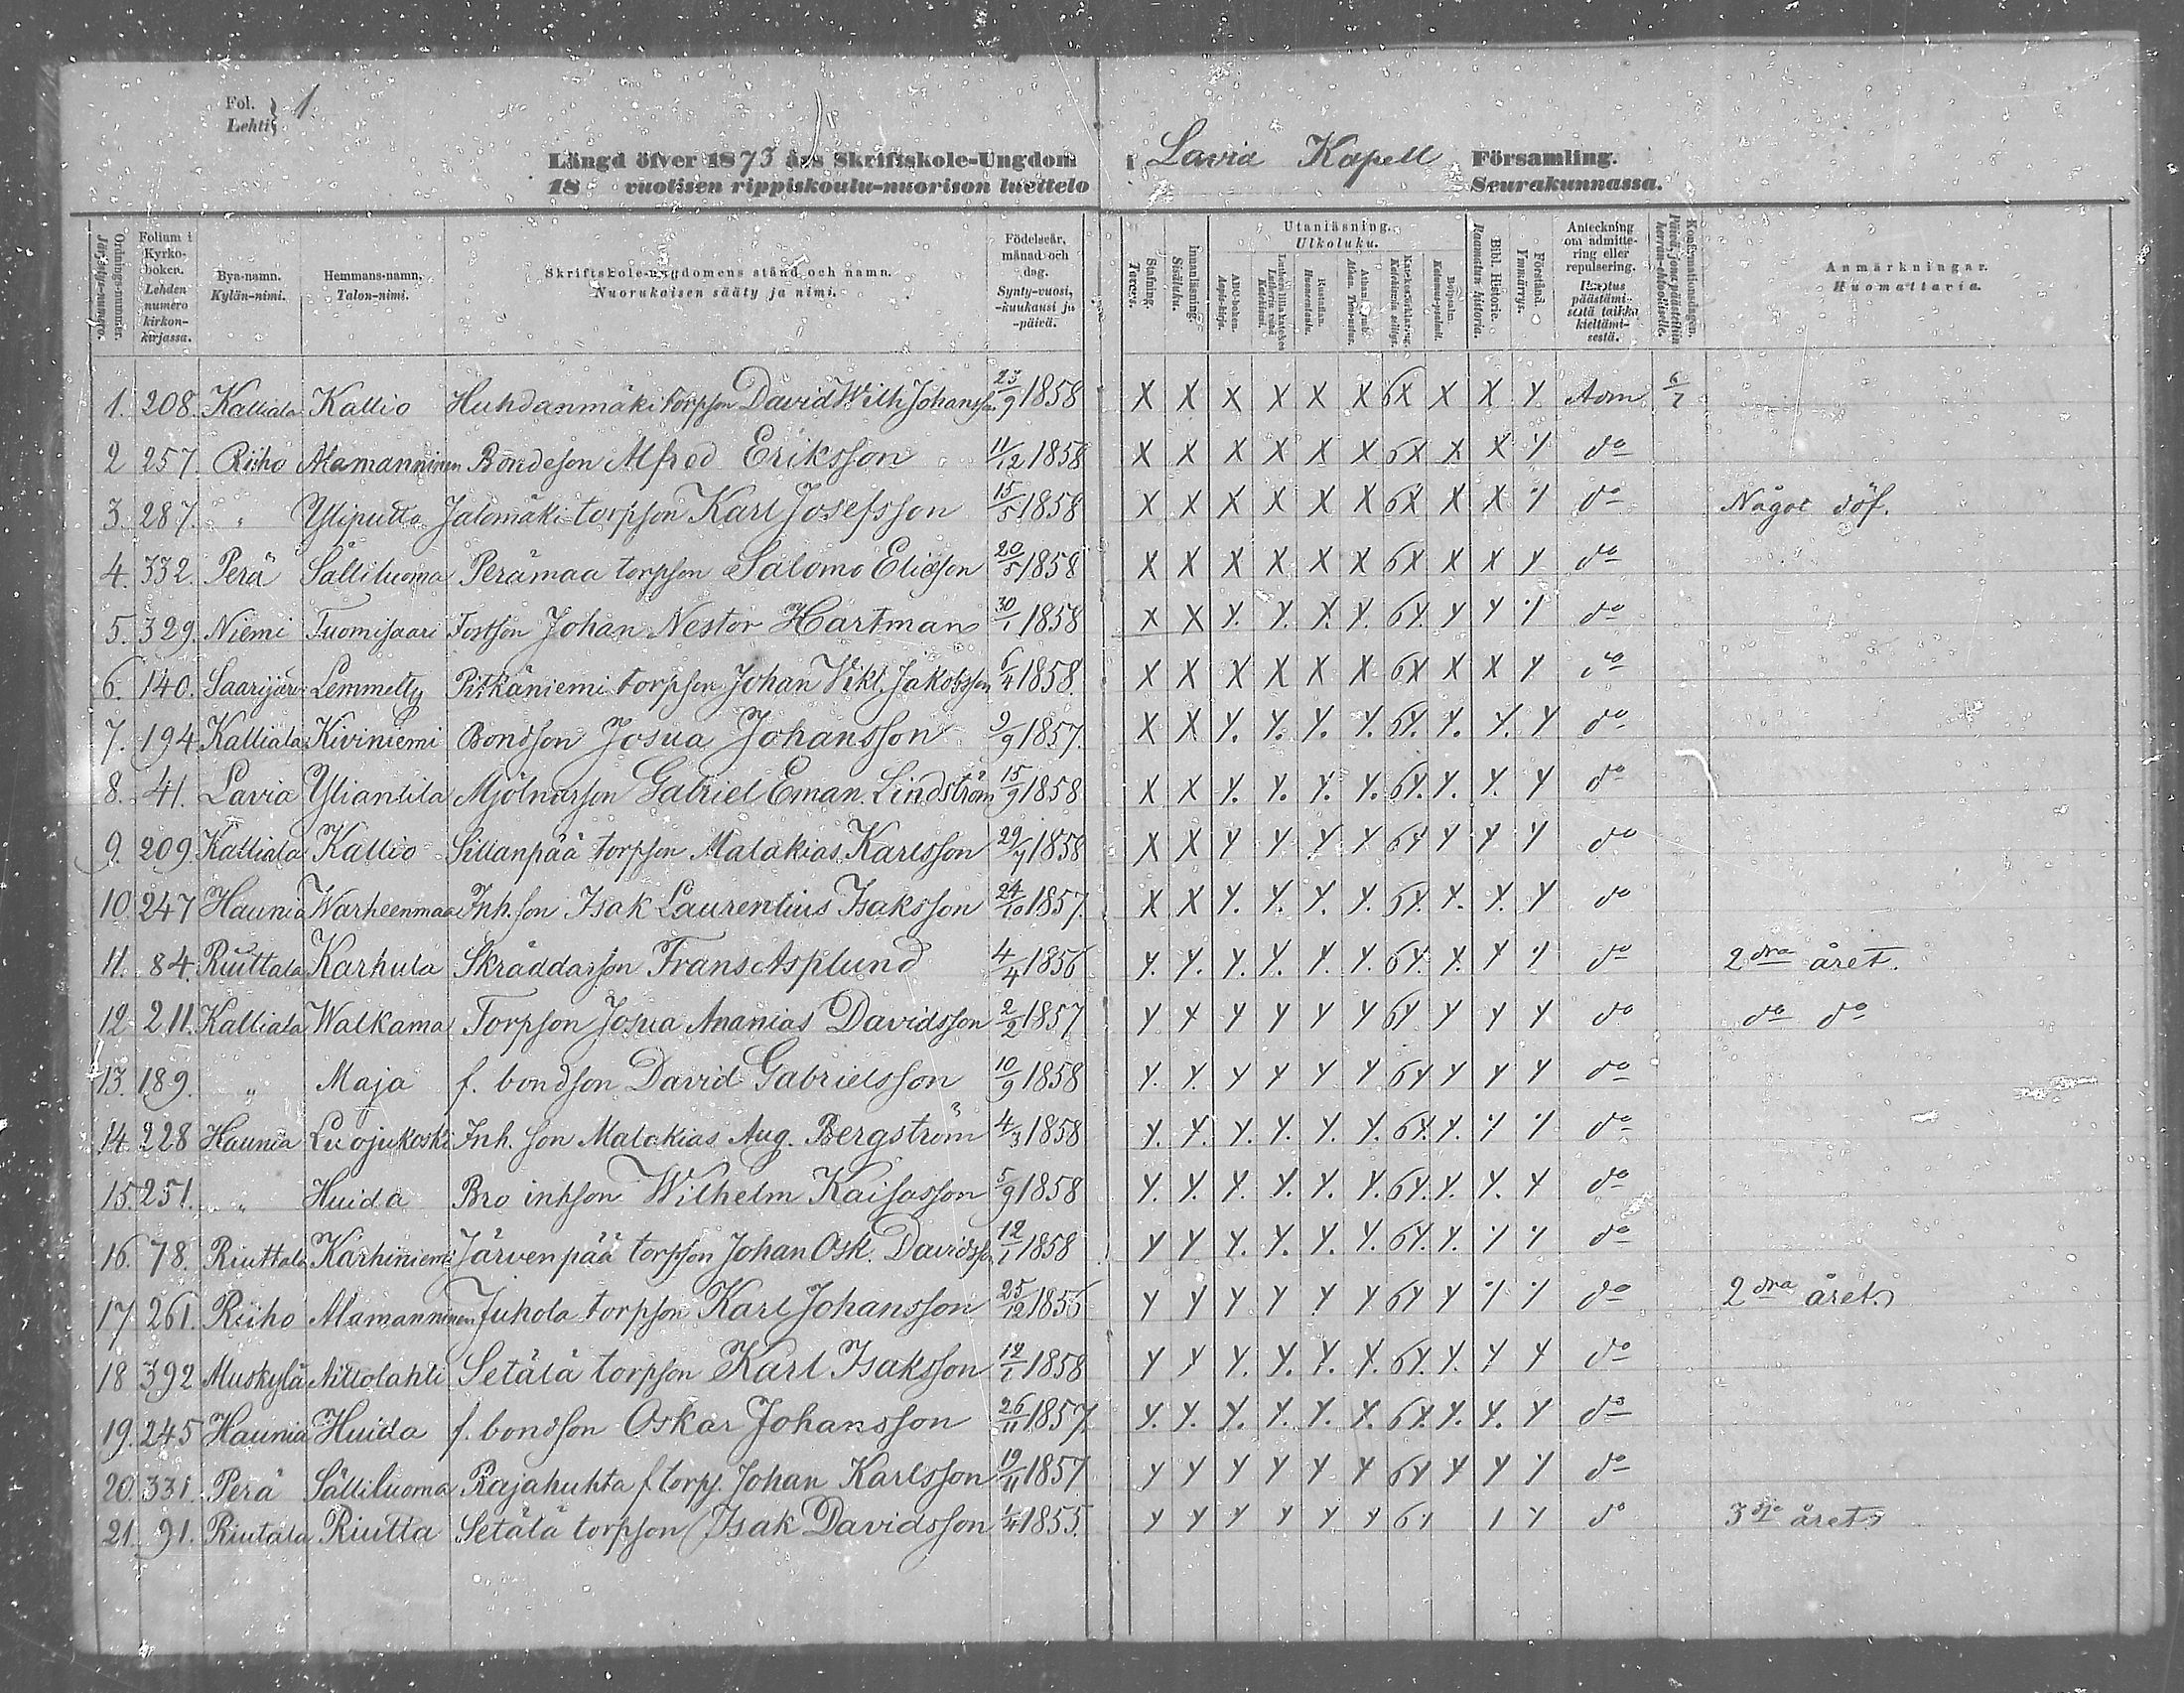 Fol. Lehti } 1.
Längd öfver 1873 års Skriftskole-Ungdom i Lavia Kapell Församling.
18 vuotisen rippiskoulu-nuorison luettelo Seurakunnassa.
Ordnings-nummer. Järjestys-numero.
Folium i Kyrko-boken. Lehden numero kirkon-kirjassa.
Bya-namn. Kylän-nimi.
Hemmans-namn. Talon-nimi.
Skriftskole-ungdomens stånd och namn. Nuorukaisen sääty ja nimi.
Födelseår, månad och dag. Synty-vuosi, -kuukausi ja -päivä.
Stafning. Tavaus.
Innanläsning. Sisäluku.
Utanläsning. Ulkoluku.
ABC-boken. Aapis-kirja.
Lutheri lilla kateches Lutherin vähä Katekismi.
Hustaflan. Huoneentaulu.
Athan. Symb. Athan. Tun-nustus.
Katechesförklaring. Katekismin selitys.
Botpsalm. Katumus-psalmit.
Bibl. Historie. Raamatun historia.
Förstånd. Ymmärrys.
Anteckning om admitte-ring eller repulsering. Muistutus päästämi-sestä taikka kieltämi-sestä.
Konfirmationsdagen. Päivä, jona päästettiin herran-ehtoolliselle.
Anmärkningar. Huomattavia.
1. 208. Kalliala Kallio Huhdanmäki torpson David Wilh Johansson 23/9 1858 X X X X X X 6X X X Y Adm 6/7
2 257. Riiho Alamanninen Bondeson Alfred Eriksson 11/12 1858 X X X X X X 6X X X Y do
3. 287. " Yliputto Jalomäki torpson Karl Josefsson 15/5 1858 X X X X X X 6X X X Y do Något döf.
4. 332. Perä Sältiluoma Perämaa torpson Salomo Eliasson 20/5 1858 X X X X X X 6X X X Y do
5. 329. Niemi Tuomisaari Fostson Johan Nestor Hartman 30/1 1858 X X Y. Y. X. Y. 6Y. Y Y Y do
6. 140. Saarijärvi Lemmetty Pitkäniemi torpson Johan Vikt. Jakobsson 6/4 1858. X X X X X X 6X X X Y do
7. 194 Kalliala Kiviniemi Bondson Josua Johansson 9/9 1857. X X Y. Y. Y. Y. 6Y. Y. Y. Y do
8. 41. Lavia Yliantila Mjölnarson Gabriel Eman. Lindström 15/9 1858 X X Y. Y. Y. Y. 6Y. Y. Y. Y do
9. 209 Kalliala Kallio Sillanpää torpson Malakias Karlsson 29/7 1858 X X Y Y Y Y 6Y Y Y Y do
10. 247 Haunia Warheenmaa Inh. son Isak Laurentius Isaksson 24/10 1857. X X Y. Y. Y. Y. 6Y. Y. Y. Y do
11. 84. Riuttala Karhula Skräddarson Frans Asplund 4/4 1856 Y. Y. Y. Y. Y. Y. 6Y. Y. Y Y do 2dra året.
12 211. Kalliala Walkama Torpson Josua Ananias Davidsson 2/2 1857 Y Y Y Y Y Y 6Y Y Y Y do do do
13. 189. " Maja f. bondson David Gabrielsson 10/9 1858 Y. Y. Y Y Y Y 6Y Y Y Y do
14. 228 Haunia Luojukoski Inh. son Malakias Aug. Bergström 4/3 1858 Y. Y. Y. Y. Y. Y. 6Y. Y. Y Y do
15. 251. " Huida Bro inhson Wilhelm Kaisasson 5/9 1858 Y. Y. Y. Y. Y. Y. 6Y. Y. Y. Y do
16. 78. Riuttala Karhiniemi Järvenpää torpson Johan Osk. Davidsson 12/1 1858 Y Y Y. Y. Y. Y. 6Y. Y. Y Y do
17 261. Riiho Alamanninen Juhola torpson Karl Johansson 25/12 1856 Y Y Y Y Y Y 6Y Y Y Y do 2dra året
18 392 Muskylä Aittolahti Setälä torpson Karl Isaksson 12/1 1858 Y Y Y. Y. Y. Y. 6Y. Y. Y Y do
19. 245 Haunia Huida f. bondson Oskar Johansson 26/11 1857. Y. Y. Y. Y. Y. Y. 6Y. Y. Y. Y do
20. 331. Perä Sältiluoma Rajahuhta f torps. Johan Karlsson 19/11 1857 Y Y Y Y Y Y 6Y Y Y Y do
21. 91. Riutala Riutta Setälä torpson Isak Davidsson 1/4 1855. Y Y Y Y Y Y 6Y Y Y do 3dje året